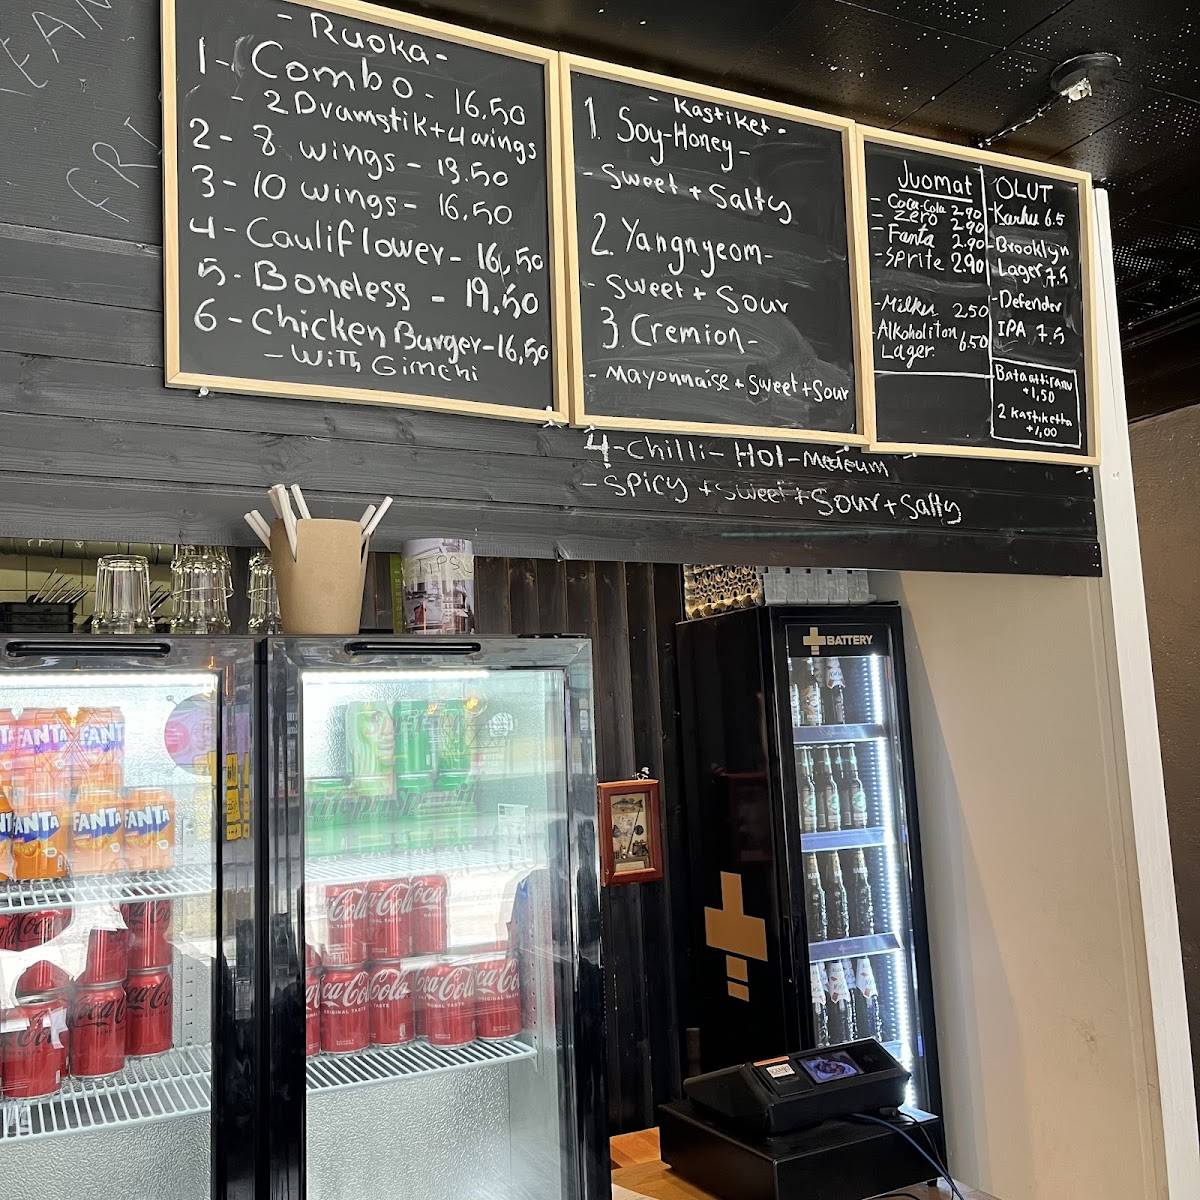 - Ruoka -
1 - Combo - 16.50
- 2 Dramstik + 4 wings
2 - 8 wings - 13.50
3 - 10 wings - 16,50
4 - Cauliflower - 16,50
5 - Boneless - 19.50
6 - Chicken Burger - 16,50
- With Gimchi
- Kastiket -
1. Soy-Honey -
- Sweet + Salty
2. Yangnyeom -
- Sweet + Sour
3. Cremion -
- Mayonnaise + Sweet + Sour
4 - Chilli - Hot - Medeum
- Spicy + Sweet + Sour + Salty
Juomat
- Coca-Cola 2.90
- Zero 2.90
- Fanta 2.90
- Sprite 2.90
- Milku 2.50
- Alkoholiton
Lager. 6.50
OLUT
- Karhu 6.5
- Brooklyn
Lager 7.5
- Defender
IPA 7.5
Bataattiranu
+1,50
2 kastiketta
+1,00
TIPS
BATTERY
FANTA FANTA
FANTA FANTA FANTA
Coca-Cola
ORIGINAL TASTE